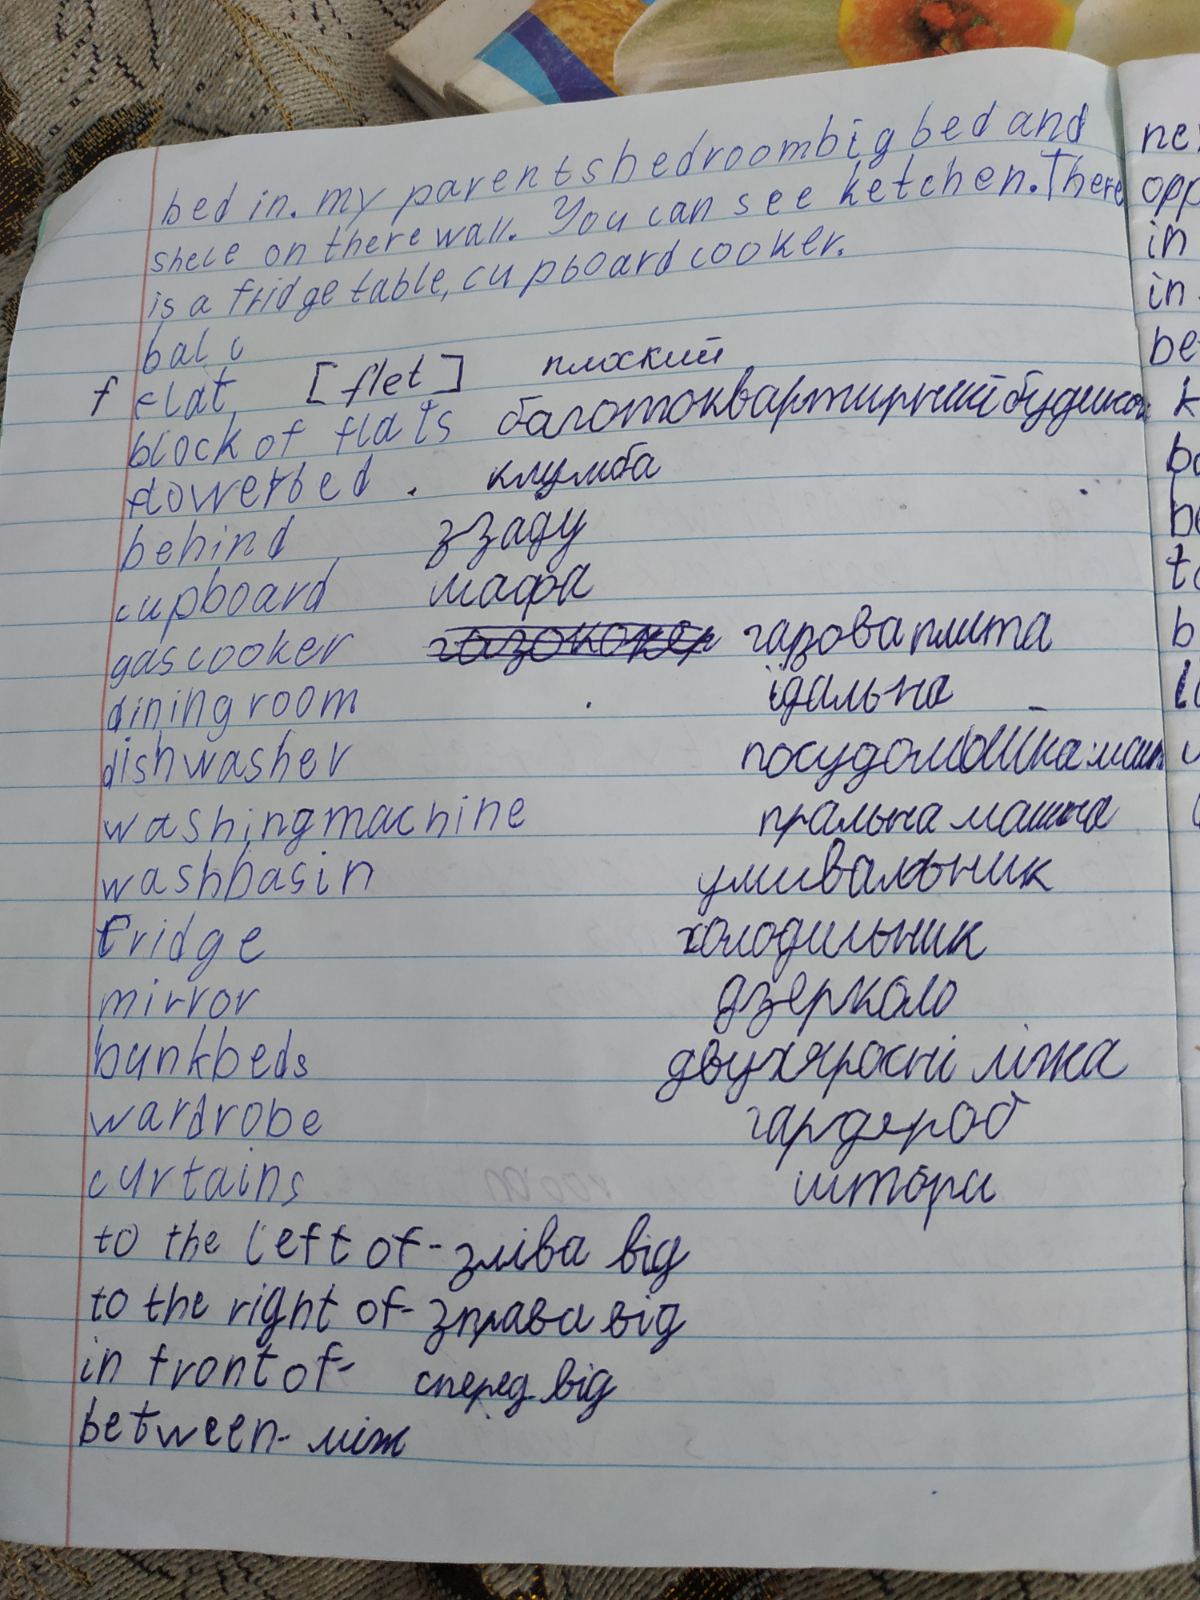 bed in. my parents bedroom big bed and
on there wall. You can see ketchen. There
is a fridge table, cupboard cooker.
f flat, [flet] плоский
block of flats
flowerbed. клумба
behind ззаду
cupboard шафа
gas cooker газова плита
dining room їдальна
dishwasher
washing machine пральна машина
washbasin умивальник
fridge холодильник
mirror дзеркало
bunkbeds двухяросні ліжка
wardrobe гардероб
curtains штори
to the left of - зліва від
to the right of - зправа від
in front of - сперед від
between - між
in
in
be
k
b